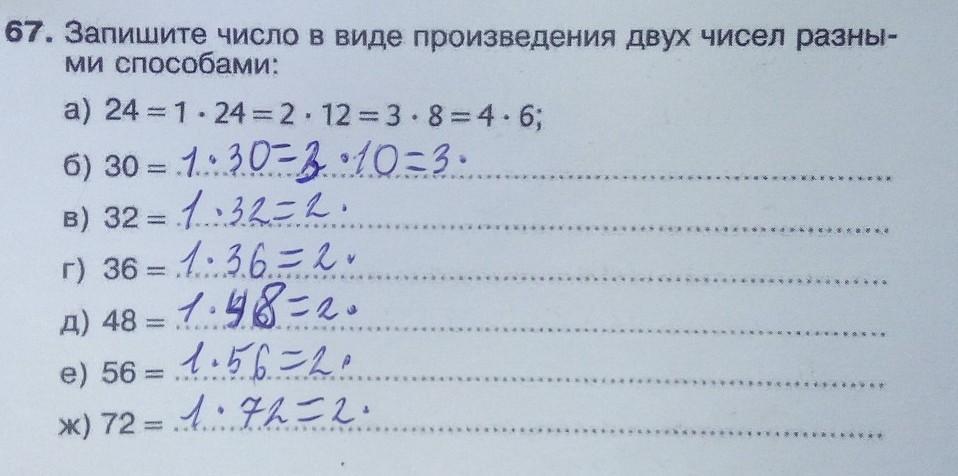 67. Запишите число в виде произведения двух чисел разны-
ми способами:
а) 24 = 1 · 24 = 2 · 12 = 3 · 8 = 4 · 6;
б) 30 = 1·30=3·10=3·
в) 32 = 1·32=2·
г) 36 = 1·36=2·
д) 48 = 1·48=2·
е) 56 = 1·56=2·
ж) 72 = 1·72=2·